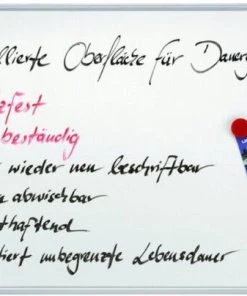 llierte Oberfläche für Dauerg
zfest
beständig
t wieder neu beschriftbar
n abwischbar
thaftend
tiert unbegrenzte Lebensdauer